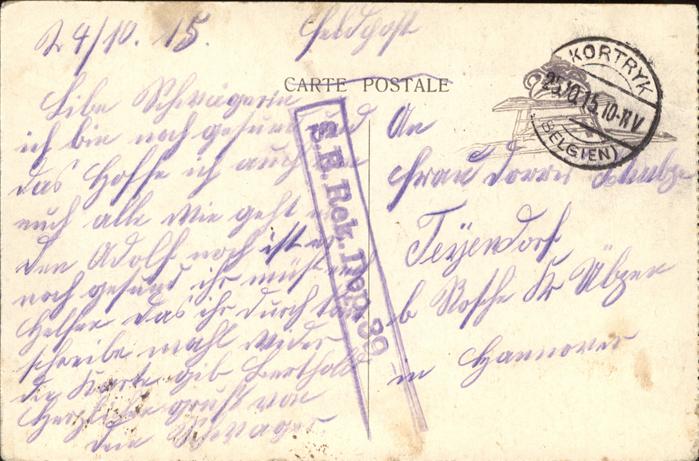 24/10. 15. Feldpost
CARTE POSTALE
KORTRYK
25.10.15.10-11V
(BELGIEN)
S.B. Rek. Dep. 39
Libe Schwägerin
ich bin noch gesund und
das Hoffe ich auch von
euch alle wie geht es
den Adolf noch ist er
noch gesund ihr müst euch
Helfen das ihr durch
schreibe mahl wider
die Karte gib Berthold
Herzliche gruß von
dein Schwager
An
Frau Schulze
Teÿendorf
b Rosche Kr Ülzen
in Hannover